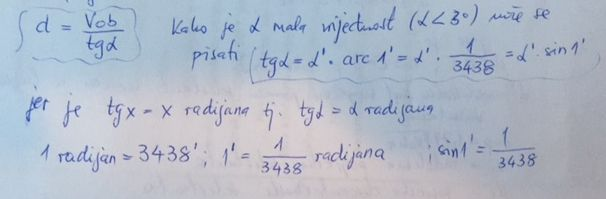 d = Vob / tgα Kako je α mala vrijednost (α<3°) može se
pisati tgα = α' · arc 1' = α' · 1/3438 = α' · sin 1'
jer je tgx = x radijana tj. tgα = α radijana
1 radijan = 3438' ; 1' = 1/3438 radijana ; sin 1' = 1/3438